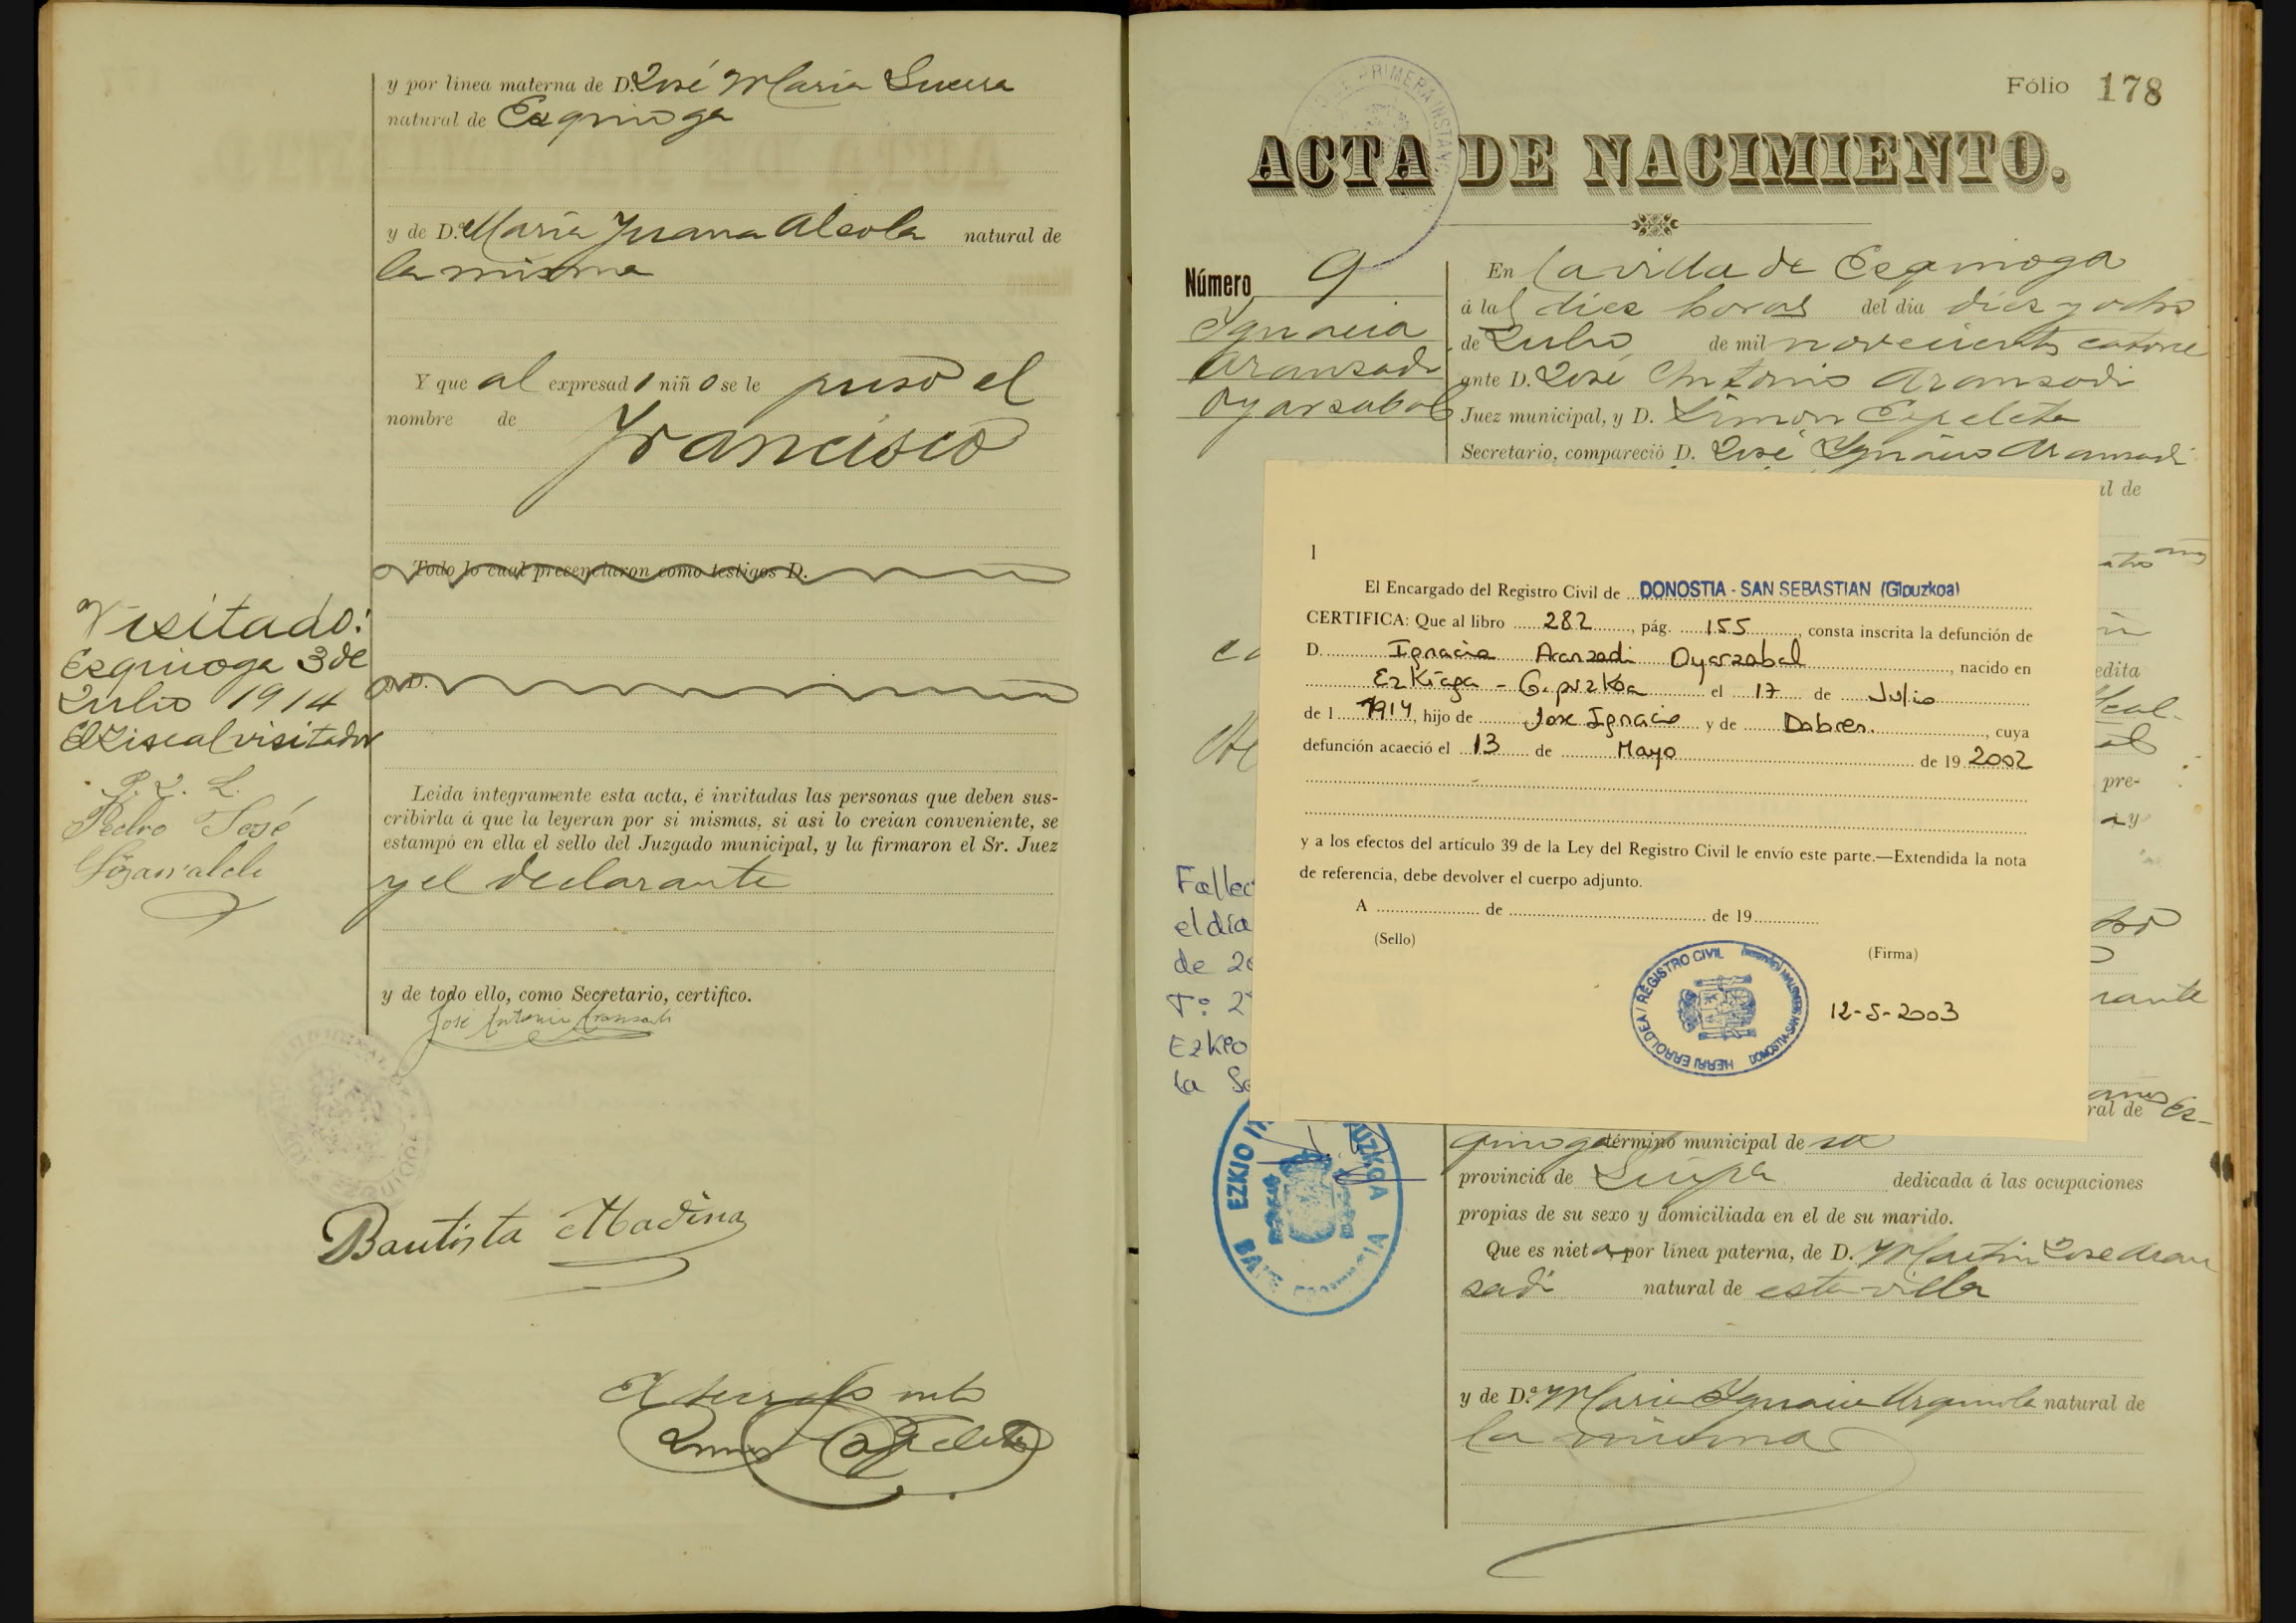 y por linea materna de D. José Maria
natural de Ezquioga
y de D.ª Maria Juana Alcola natural de
la misma
Y que al expresado niño se le puso el
nombre de Francisco
Todo lo cual presenciaron como testigos D.
y D.
Visitado:
Ezquioga 3 de
Julio 1914
El Fiscal visitador
P. D. L.
Pedro José
Leida integramente esta acta, é invitadas las personas que deben sus-
cribirla á que la leyeran por si mismas, si asi lo creian conveniente, se
estampó en ella el sello del Juzgado municipal, y la firmaron el Sr. Juez
y el declarante
y de todo ello, como Secretario, certifico.
José Antonio Aransadi
Bautista Madina
Fólio 178
ACTA DE NACIMIENTO.
Número 9
Ygnacia
Aransadi
Oyarzabal
En la villa de Ezquioga
á las diez horas del dia diez y ocho
de Julio de mil novecientos catorce
ante D. José Antonio Aransadi
Juez municipal, y D. Simon Ezpeleta
Secretario, compareció D. José Ygnacio Aransadi
al de
edita
pre-
a y
rante
años
ral de Ez-
1
El Encargado del Registro Civil de DONOSTIA - SAN SEBASTIAN (Gipuzkoa)
CERTIFICA: Que al libro 282, pág. 155, consta inscrita la defunción de
D. Ignacia Aranzadi Oyarzabal, nacido en
Ezkiaga - Gipuzkoa el 17 de Julio
de 1 1914, hijo de Jose Ignacio y de Dolores., cuya
defunción acaeció el 13 de Mayo de 19 2002
y a los efectos del artículo 39 de la Ley del Registro Civil le envío este parte.—Extendida la nota
de referencia, debe devolver el cuerpo adjunto.
A ........ de ........ de 19........
(Sello)
(Firma)
REGISTRO CIVIL DONOSTIA-SAN SEBASTIAN (Gipuzkoa) HERRI ERROLDEA /
12-5-2003
Fallec
el día
de 20
Tº 2
Ezkio
la Se
EZKIO
quioga término municipal de id
provincia de Guipª dedicada á las ocupaciones
propias de su sexo y domiciliada en el de su marido.
Que es nieta por linea paterna, de D. Martin José Aran
sadi natural de esta villa
y de D.ª Maria Ygnacia Urquiola natural de
la misma